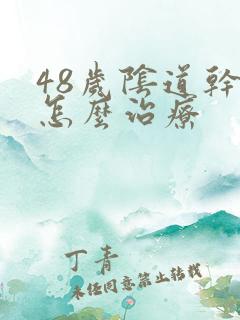 48歲陰道幹
怎麼治療
丁青
未經同意禁止轉載